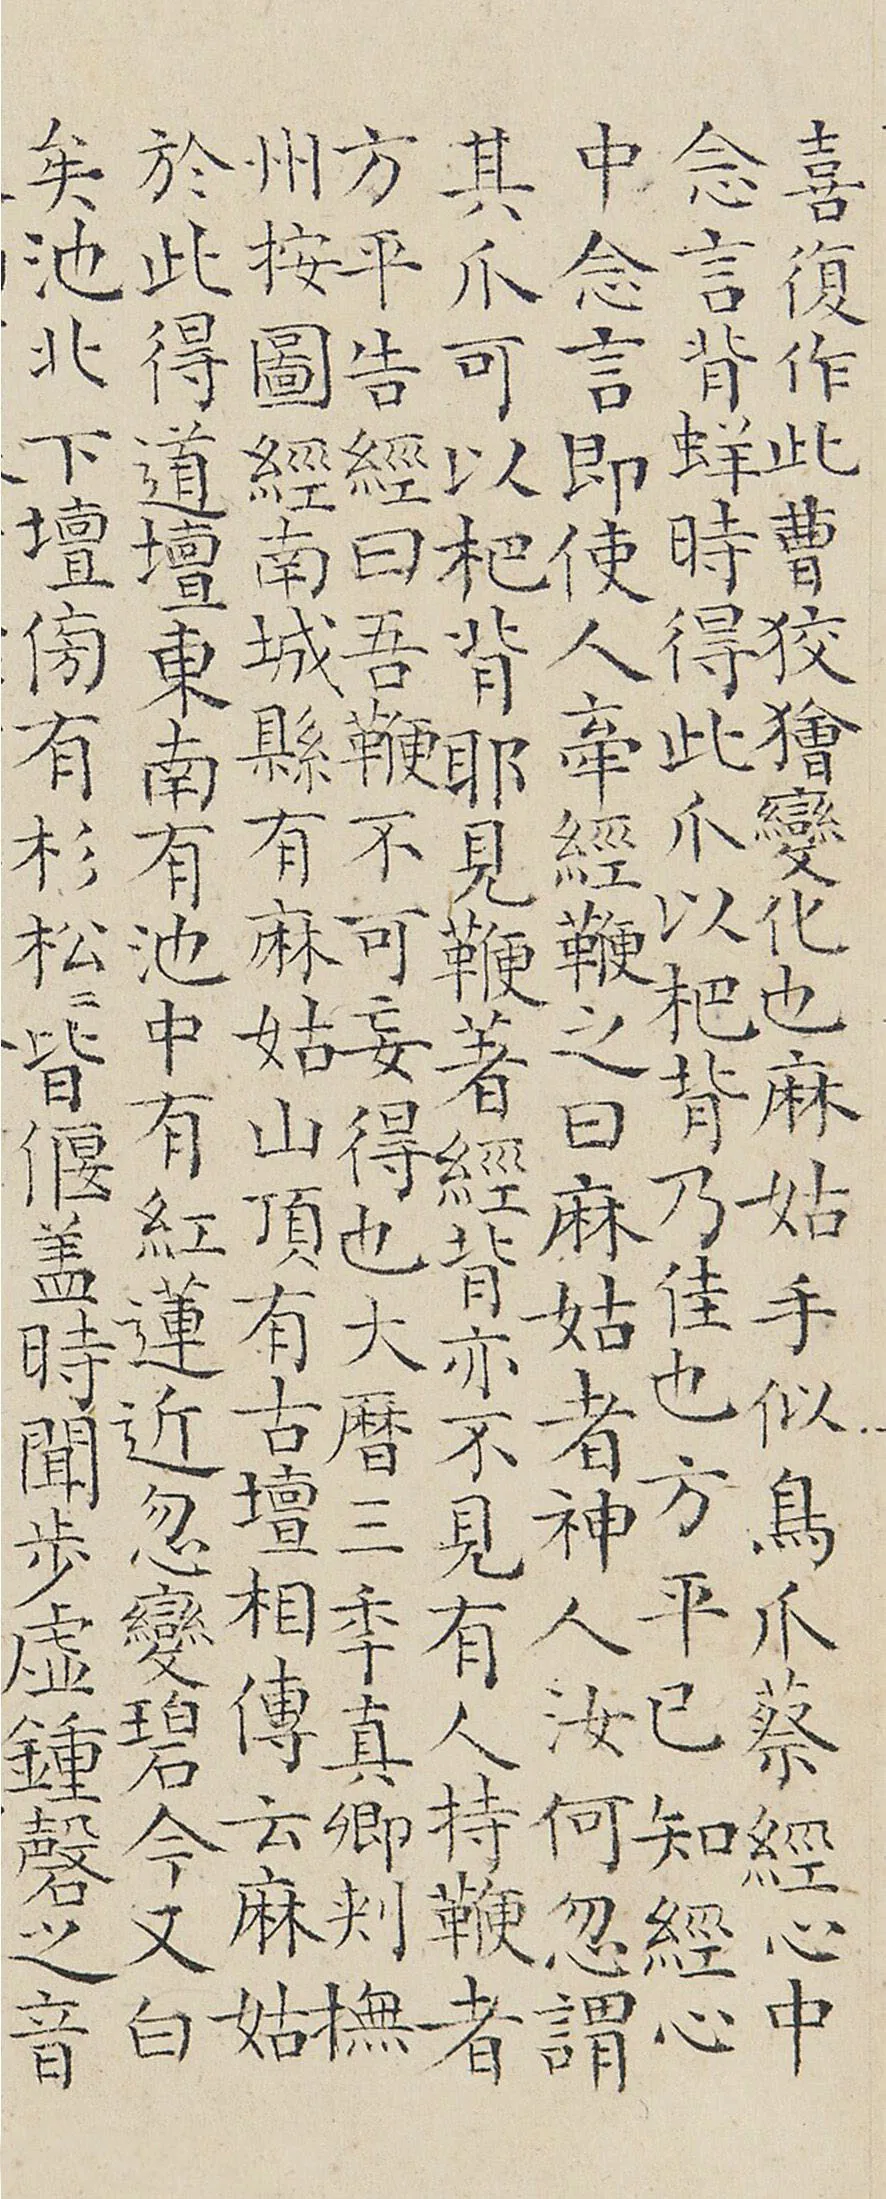 喜復作此曹狡獪變化也麻姑手似鳥爪蔡經心中
念言背蛘時得此爪以杷背乃佳也方平已知經心
中念言即使人牽經鞭之曰麻姑者神人汝何忽謂
其爪可以杷背耶見鞭著經背亦不見有人持鞭者
方平告經曰吾鞭不可妄得也大曆三季真卿刾撫
州按圖經南城縣有麻姑山頂有古壇相傳云麻姑
於此得道壇東南有池中有紅蓮近忽變碧今又白
矣池北下壇傍有杉松〻皆偃盖時聞步虛鍾磬之音